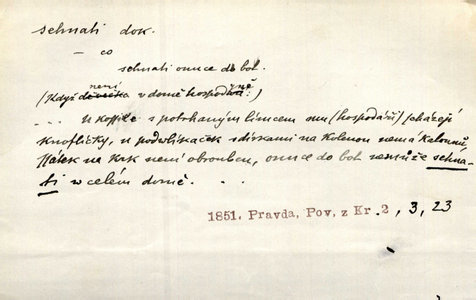 schnati dok.
— co
schnati onuce do bot.
není
(Když děvečka v domě hospodyně:)
... U košile s potrhaným límcem mu (hospodáři) scházejí
knoflíčky, u podvlíkaček s dírkami na kolenou nemá kalounů,
šátek na krk není obrouben, onuce do bot nemůže schna-
ti v celém domě. . .
1851. Pravda, Pov. z Kr. 2, 3, 23